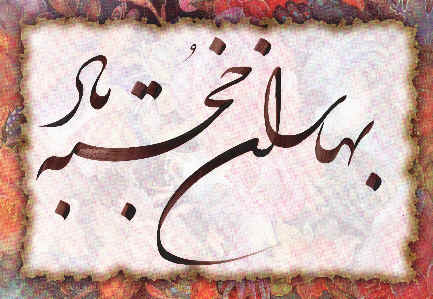 بهاران خجسته باد